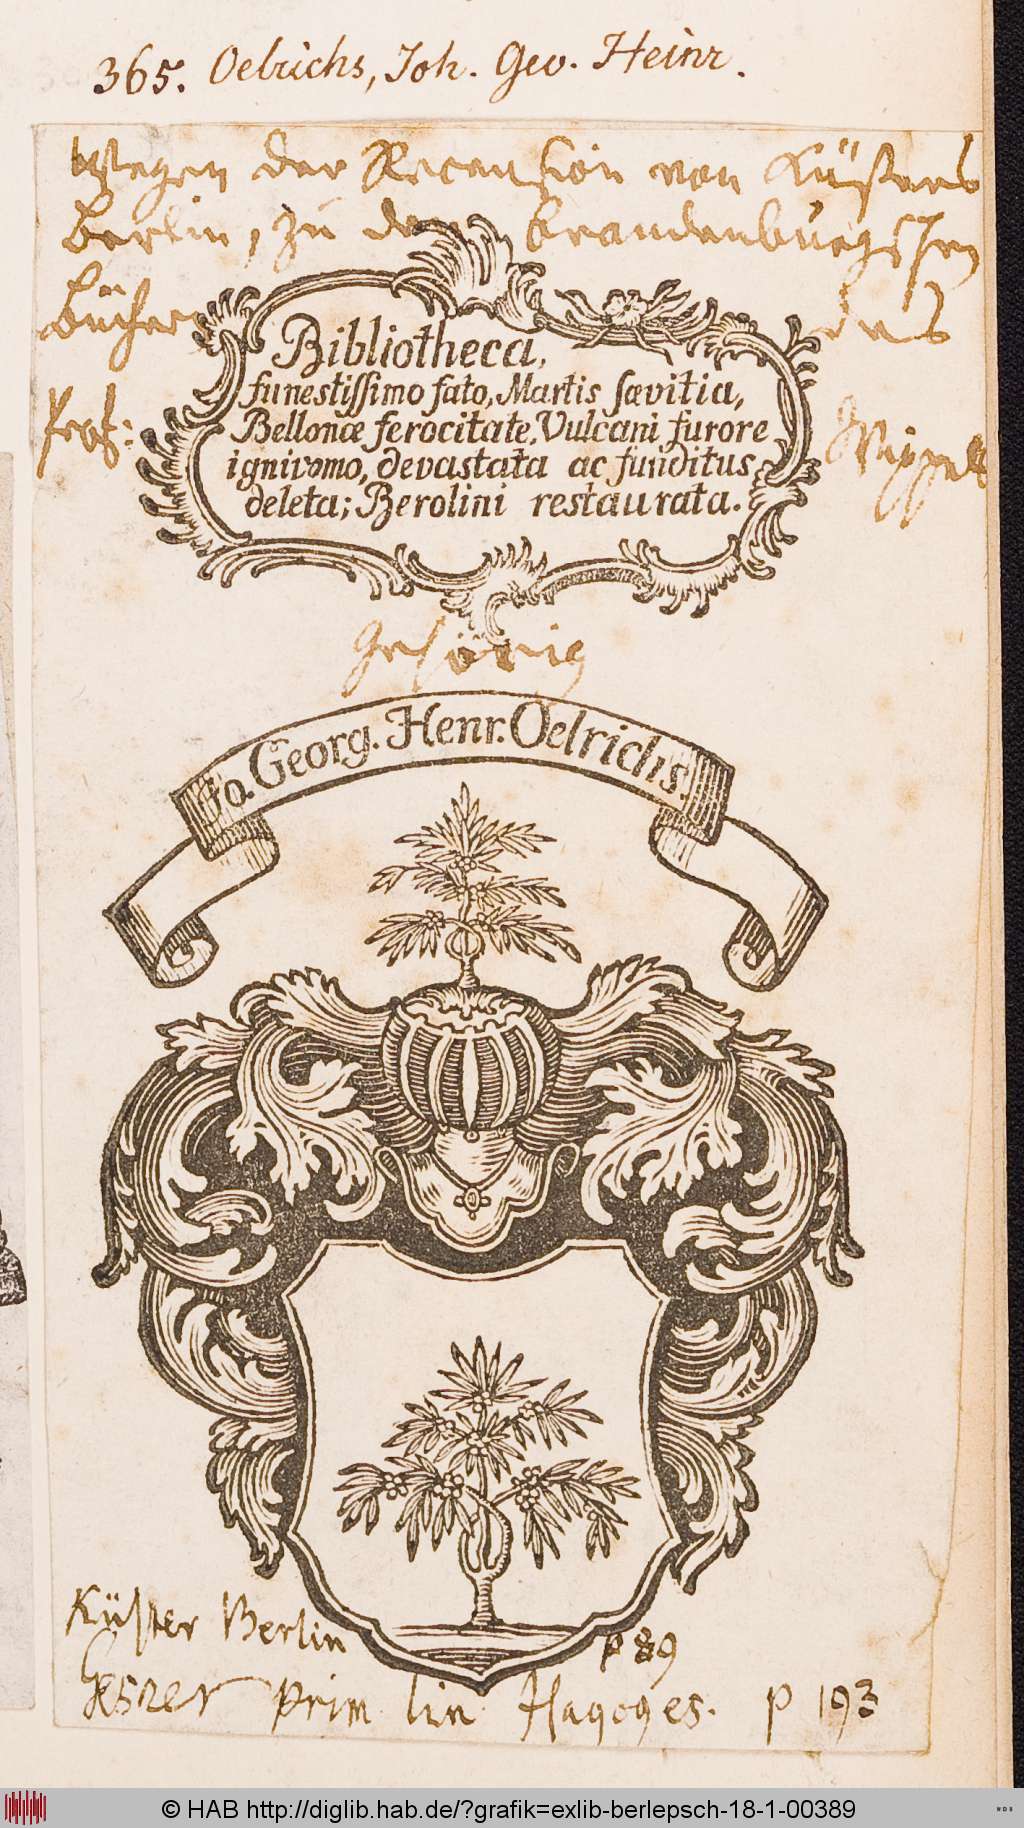 365. Oelrichs, Joh. Geo. Heinr.
Wegen der Recension von Küsters
Berlin, zu den brandenburgschen
Büchern des
Prof:
Bibliotheca,
funestissimo fato, Martis sævitia,
Bellonæ ferocitate, Vulcani furore
ignivomo, devastata ac funditus
deleta; Berolini restaurata.
Gehörig
Jo. Georg. Henr. Oelrichs.
Küster Berlin p 89
Gesner prim lin Hagoges. p 193
© HAB http://diglib.hab.de/?grafik=exlib-berlepsch-18-1-00389